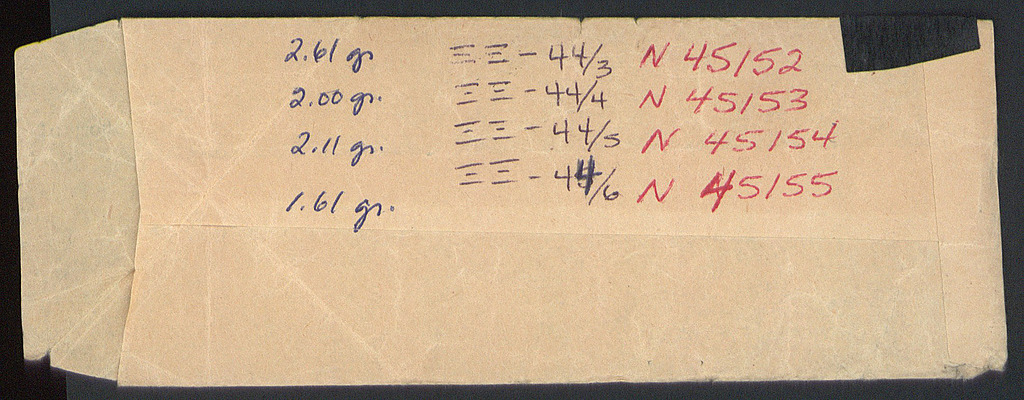 2.61 gr. ΞΞ - 44/3 N 45152
2.00 gr. ΞΞ - 44/4 N 45153
2.11 gr. ΞΞ - 44/5 N 45154
1.61 gr. ΞΞ - 44/6 N 45155